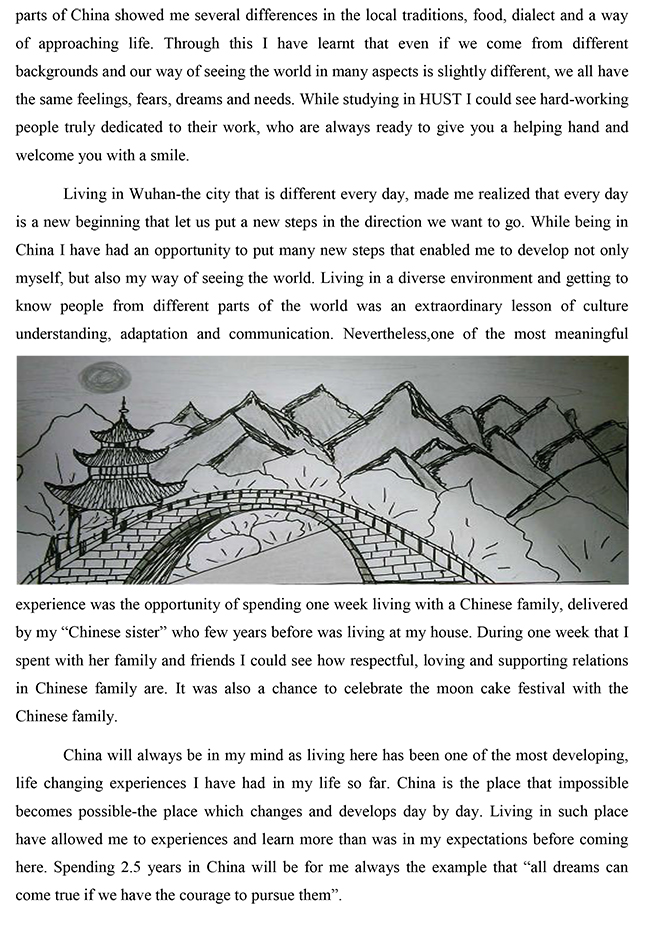 parts of China showed me several differences in the local traditions, food, dialect and a way
of approaching life. Through this I have learnt that even if we come from different
backgrounds and our way of seeing the world in many aspects is slightly different, we all have
the same feelings, fears, dreams and needs. While studying in HUST I could see hard-working
people truly dedicated to their work, who are always ready to give you a helping hand and
welcome you with a smile.
Living in Wuhan-the city that is different every day, made me realized that every day
is a new beginning that let us put a new steps in the direction we want to go. While being in
China I have had an opportunity to put many new steps that enabled me to develop not only
myself, but also my way of seeing the world. Living in a diverse environment and getting to
know people from different parts of the world was an extraordinary lesson of culture
understanding, adaptation and communication. Nevertheless,one of the most meaningful
experience was the opportunity of spending one week living with a Chinese family, delivered
by my “Chinese sister” who few years before was living at my house. During one week that I
spent with her family and friends I could see how respectful, loving and supporting relations
in Chinese family are. It was also a chance to celebrate the moon cake festival with the
Chinese family.
China will always be in my mind as living here has been one of the most developing,
life changing experiences I have had in my life so far. China is the place that impossible
becomes possible-the place which changes and develops day by day. Living in such place
have allowed me to experiences and learn more than was in my expectations before coming
here. Spending 2.5 years in China will be for me always the example that “all dreams can
come true if we have the courage to pursue them”.